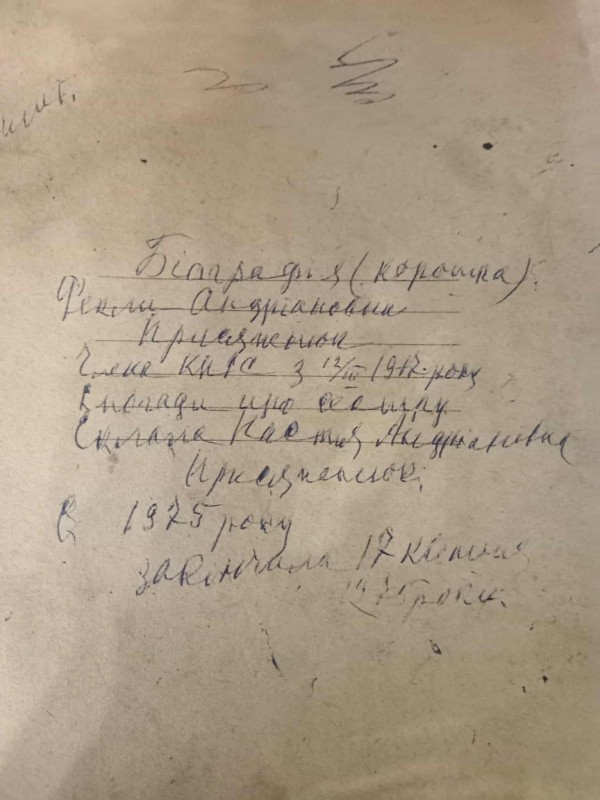 Біаграфия (корошка).
Фекли Андріановни
Присяженюк
Члена КПРС з 12/III 1917 року
Впогади про сестру
Склала Настя Андріановна
Присяженюк.
В 1975 року
закінчила 17 квітня
1975 року.